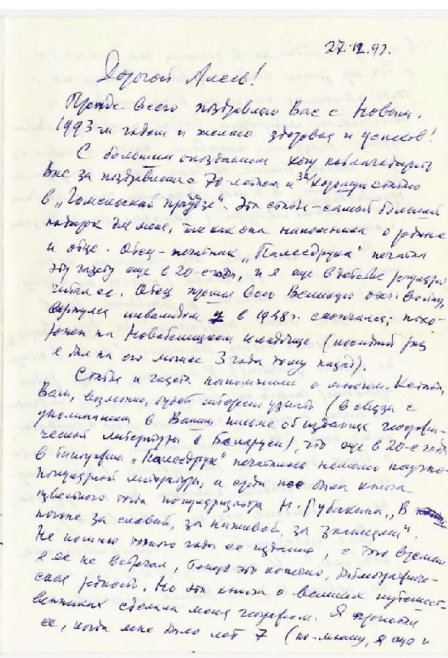 27.12.92.
Дорогой Алесь!
Прежде всего поздравляю Вас с Новым
1993-м годом и желаю здоровья и успехов!
С большим опозданием хочу поблагодарить
Вас за поздравление с 70-летием и за хорошую статью
в "Гомельской праўдзе". Эта статья - самый большой
подарок для меня, так как она напомнила о родине
и отце. Отец - печатник "Палесдрука" печатал
эту газету еще в 20-е годы, и я еще в детстве регулярно
читал ее. Отец прошел всю Великую отеч. войну,
вернулся инвалидом и в 1948 г. скончался; похо-
ронен на Новобелицком кладбище (последний раз
я был на его могиле 3 года тому назад).
Статья и газета напомнили о многом. Кстати,
Вам, возможно, будет интересно узнать (в связи с
упоминанием в Вашем письме об издании географи-
ческой литературы в Беларуси), что еще в 20-е годы
в типографии "Палесдрук" печаталось немало научно-
популярной литературы, и среди нее была книга
известного тогда популяризатора Н. Губского "В
погоне за славой, за наживой, за знанием".
Не помню точного года ее издания, с того времени
я ее не встречал, теперь это, конечно, библиографиче-
ская редкость. Но эта книга о великих путешест-
венниках сделала меня географом. Я прочитал
ее, когда мне было лет 7 (по-моему, я еще и